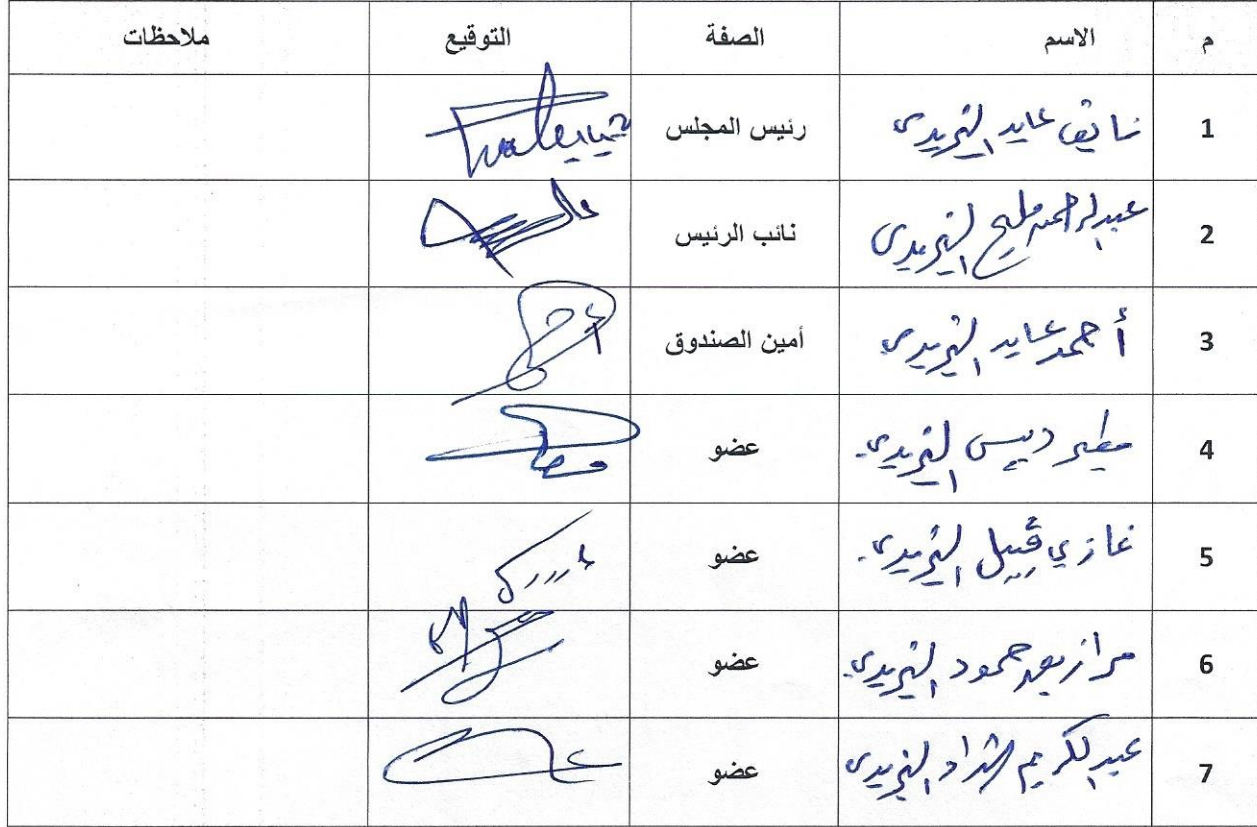 م الاسم الصفة التوقيع ملاحظات
1 نايف عايد التريدي رئيس المجلس
2 عبدالرحمن مليح التريدي نائب الرئيس
3 أحمد عايد التريدي أمين الصندوق
4 مطير دبيس التريدي عضو
5 غازي قبيل التريدي عضو
6 حمود التريدي عضو
7 عبدالكريم التريدي عضو